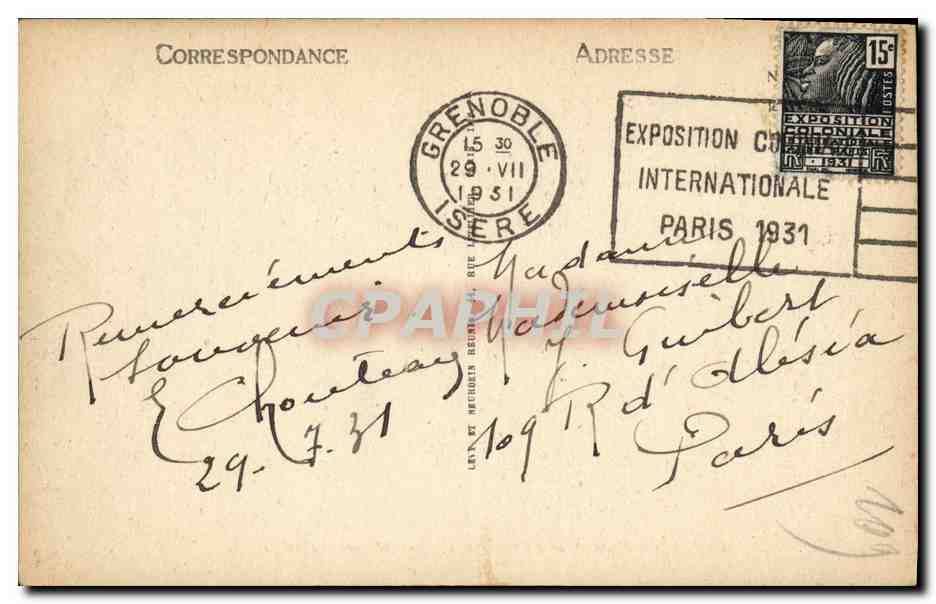 CORRESPONDANCE
ADRESSE
15c
POSTES
EXPOSITION
COLONIALE
INTERNATIONALE
PARIS
1931
GRENOBLE
15 30
29 · VII
1931
ISERE
EXPOSITION CO
INTERNATIONALE
PARIS 1931
Remerciements
Souvenir
E Chouteau
29-7-31
Madame
Mademoiselle
J. Guibert
109 R d'Alésia
Paris
LEVY ET NEURDEIN RÉUNIS 44, RUE LETELLIER
CPAPHIL
109